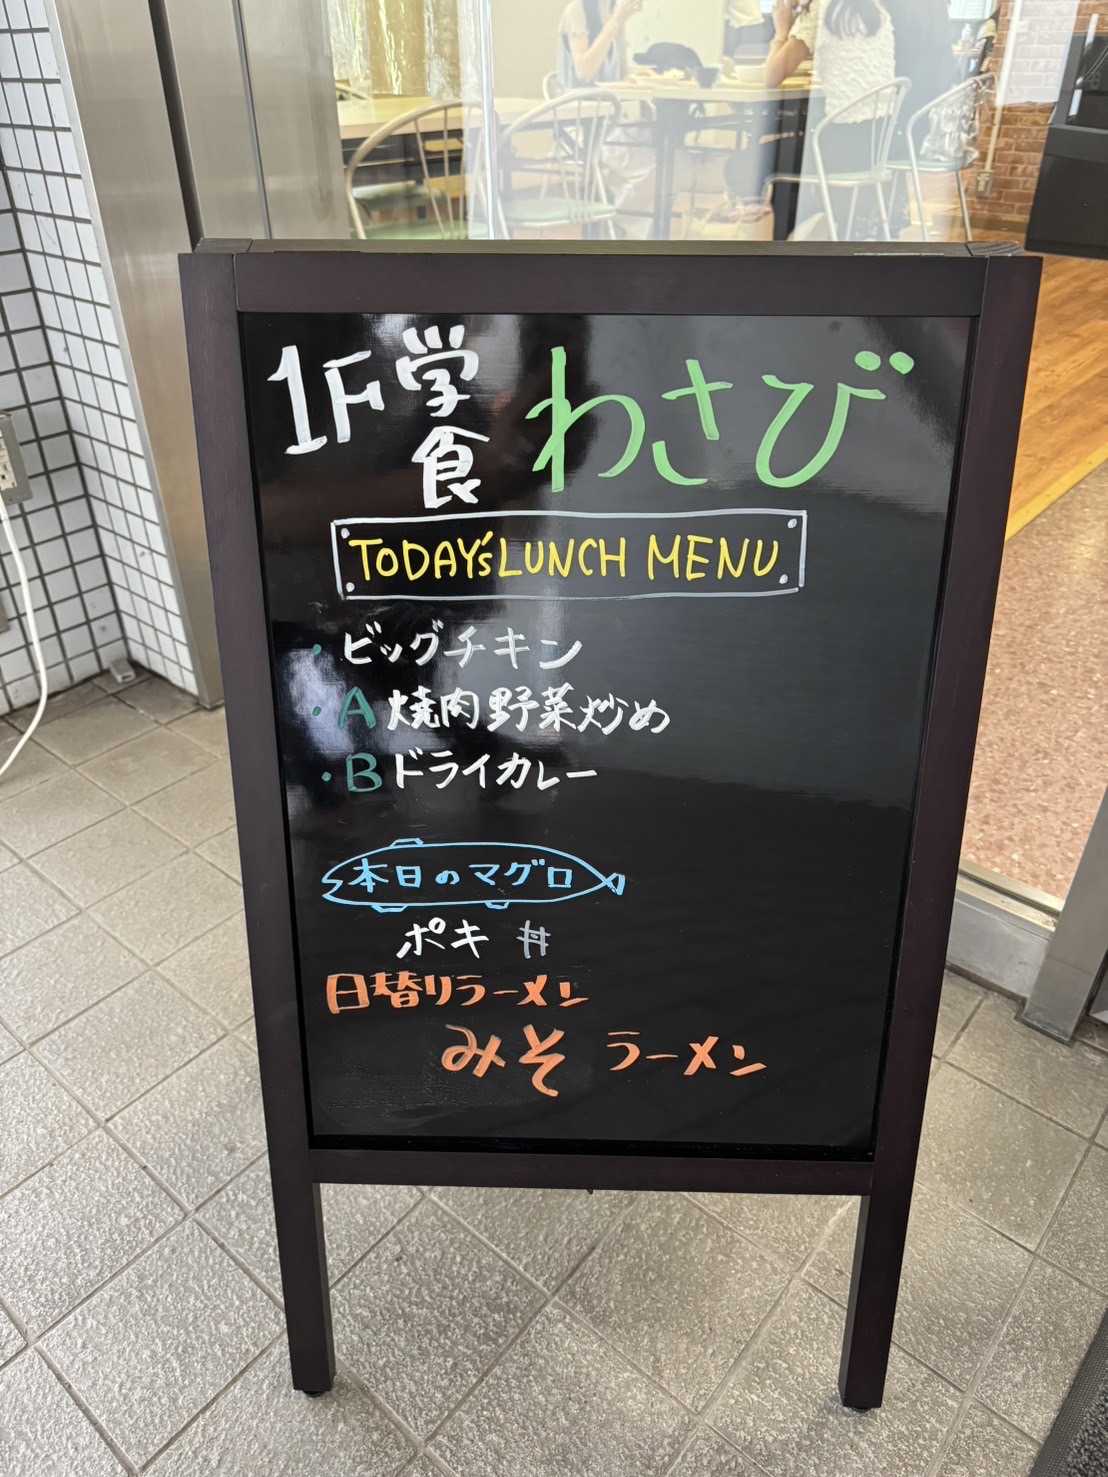 1F 学食 わさび
TODAY'S LUNCH MENU
・ビッグチキン
・A 焼肉野菜炒め
・B ドライカレー
本日のマグロ
ポキ 丼
日替りラーメン
みそ ラーメン